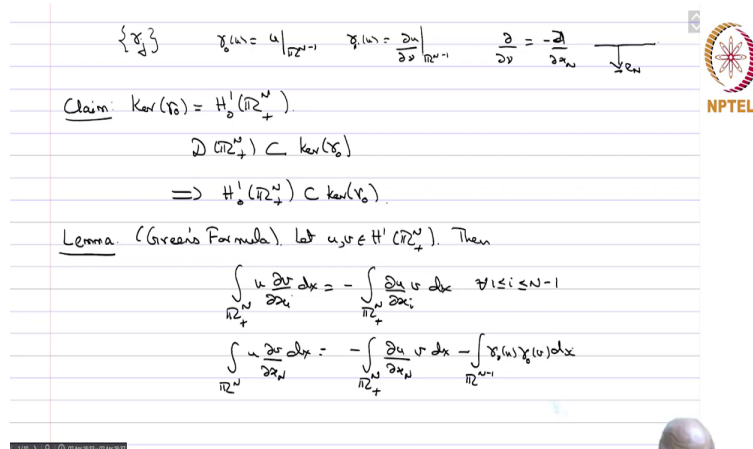 {γ_j} γ_0(u) = u|_{ℝ^{N-1}} γ_1(u) = ∂u/∂ν|_{ℝ^{N-1}} ∂/∂ν = -∂/∂x_N -e_N
NPTEL
Claim: Ker(γ_0) = H_0^1(ℝ_+^N).
D(ℝ_+^N) ⊂ ker(γ_0)
⟹ H_0^1(ℝ_+^N) ⊂ ker(γ_0).
Lemma. (Green's Formula). Let u,v ∈ H^1(ℝ_+^N). Then
∫_{ℝ_+^N} u ∂v/∂x_i dx = -∫_{ℝ_+^N} ∂u/∂x_i v dx ∀ 1≤i≤N-1
∫_{ℝ^N} u ∂v/∂x_N dx = -∫_{ℝ_+^N} ∂u/∂x_N v dx - ∫_{ℝ^{N-1}} γ_0(u) γ_0(v) dx